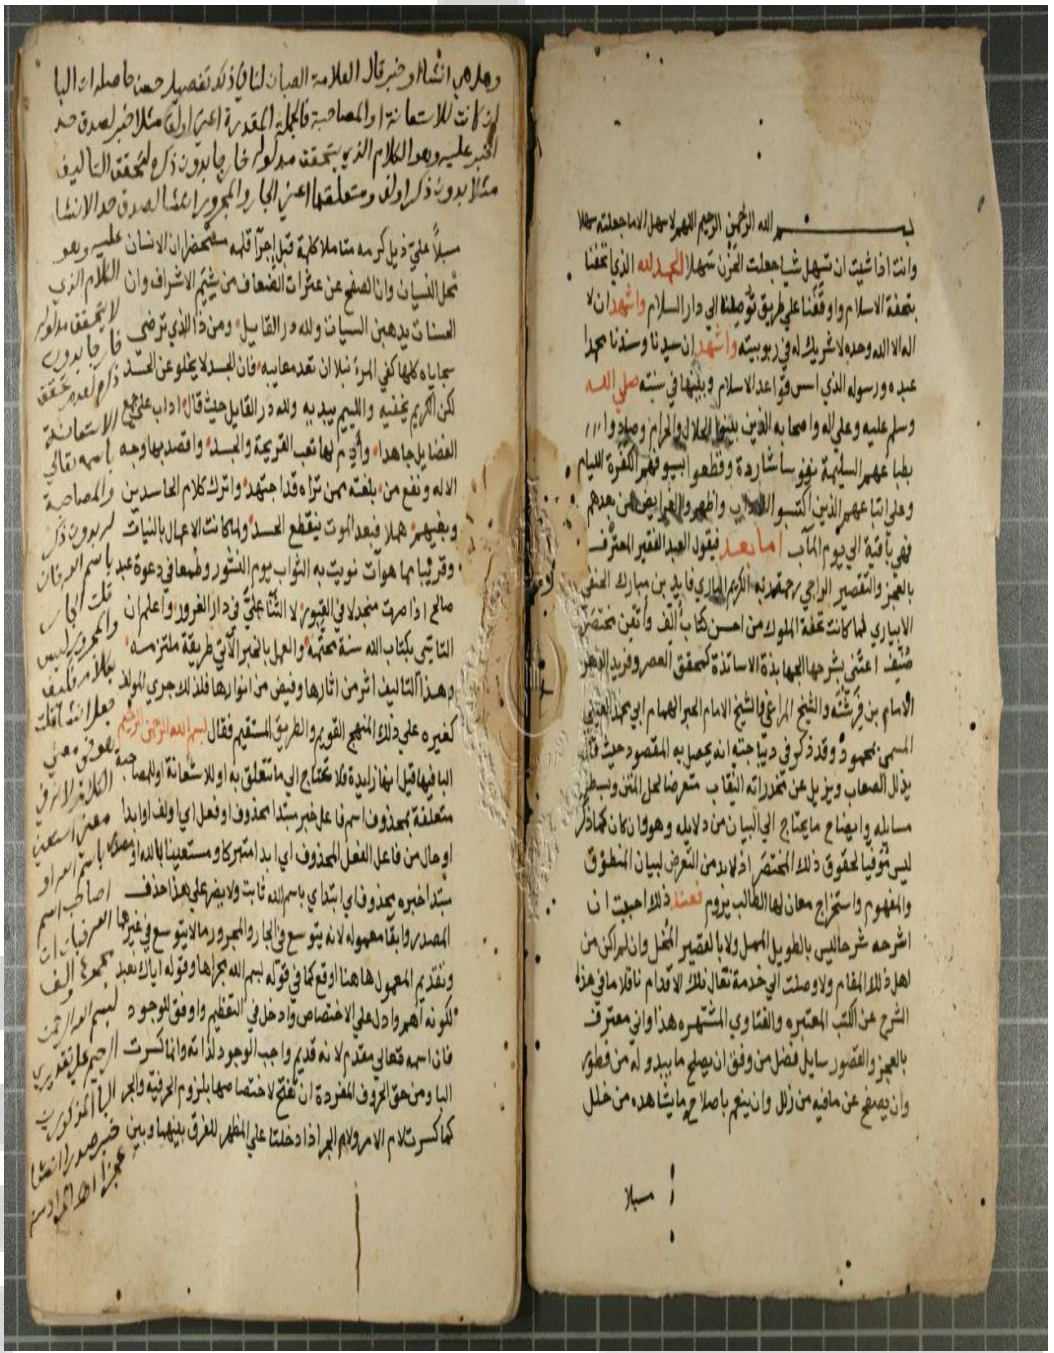 بسم الله الرحمن الرحيم اللهم لا سهل الا ما جعلته سهلا
وانت اذا شيت ان تسهل شيا جعلت الحزن سهلا الحمد لله الذي اتحفنا
بتحفة الاسلام واوقفنا علي طريق توصلنا الي دار السلام واشهد ان لا
اله الا الله وحده لا شريك له في ربوبيته واشهد ان سيدنا وسندنا محمدا
عبده ورسوله الذي اسس قواعد الاسلام وبينها في سنته صلي الله
وسلم عليه وعلي اله واصحابه الذين بينوا الحلال والحرام وصادوا
بطباعهم السليمة نفوسا شاردة وقطعوا بسيوفهم الكفرة الليام
وعلي اتباعهم الذين اكتسبوا واظهروا الفرايض لمن بعدهم
فهي باقية الي يوم المآب اما بعد فيقول العبد الفقير المعترف
بالعجز والتقصير الراجي رحمة ربه الكريم الباري فايد بن مبارك الحنفي
الابياري لما كانت تحفة الملوك من احسن كتاب ألف وأتقن مختصر
صنف اعتني بشرحها الجهابذة الاساتذة كمحقق العصر وفريد الدهر
الامام بن فرشته والشيخ المراغي والشيخ الامام الحبر الهمام ابي محمد العيني
المسمي بمحمود وقد ذكر في ديباجته انه يحصل به المقصود حيث قال
يذلل الصعاب ويزيل عن مخدراته النقاب متعرضا لحل المتن وبسط
مسايله وايضاح ما يحتاج الي البيان من دلايله وهو وان كان كما ذكر
ليس موفيا بحقوق ذلك المختصر اذ لابد من التعرض لبيان المنطوق
والمفهوم واستخراج معان لها الطالب يروم فعند ذلك احببت ان
اشرحه شرحا ليس بالطويل الممل ولا بالقصير المخل وان لم اكن من
اهل ذلك المقام ولا وصلت الي خدمة نعال تلك الاقدام ناقلا ما في هذه
الشرح عن الكتب المعتبره والفتاوي المشتهره هذا واني معترف
بالعجز والقصور سايل فضل من وقف ان يصلح ما يبدو له من فطور
وان يصفح عن ما فيه من زلل وان ينعم باصلاح ما يشاهده من خلل
مسبلا
وهل هي انشا او خبر قال العلامة الصبان لنا في ذلك تفصيل حسن حاصله ان البا
ان كانت للاستعانة او المصاحبة فالجملة المقدرة اعني اولف مثلا خبر لصدق حد
الخبر عليه وهو الكلام الذي يتحقق مدلوله خارجا بدون ذكره لتحقق التاليف
مثلا بدون ذكر اولف ومتعلقها اعني الجار والمجرور انشا لصدق حد الانشا
عليه وهو
الكلام الذي
لا يتحقق مدلوله
خارجا بدون
ذكره لعدم تحقق
الاستعانة
باسمه تعالي
والمصاحبة
له بدون ذكر
باسم الله فان
قلت الجار
والمجرور ليس
بكلام فكيف
جعل انشا قلت
هو في معني
الكلام
معني استعين
باسم الله او
اصاحب اسم
مسبلا علي ذيل كرمه متاملا كلمة قبل اجرآ قلمه مستحضرا ان الانسان
محل النسيان وان الصفح عن عثرات الضعاف من شيم الاشراف وان
الحسنات يذهبن السيات ولله در القايل ومن ذا الذي ترضي
سجاياه كلها كفي المرء نبلا ان تعد معايبه فان الجسد لا يخلو عن الحسد
لكن الكريم يخفيه والليم يبديه ولله در القايل حيث قال اداب علي جمع
الفضايل جاهدا وأدم لها تعب القريحة والجسد واقصد بها وجه
الاله ونفع من بلغته ممن تراه قد اجتهد واترك كلام الحاسدين
وبغيهم هملا فبعد الموت ينقطع الحسد ولما كانت الاعمال بالنيات
وقريبا ما هو آت نويت به الثواب يوم النشور وطمعا في دعوة عبد
صالح اذا صرت منجدلا في القبور لا الثنا علي في دار الغرور واعلم ان
التاسي بكتاب الله سنة محتمة والعمل بالخبر الآتي طريقة ملتزمه
وهذا التاليف اثر من اثارها وفيض من انوارها فلذلك جري المولف
كغيره علي ذلك المنهج القويم والطريق المستقيم فقال بسم الله الرحمن الرحيم
البا فيها قيل انها زايدة فلا تحتاج الي ما تتعلق به او للاستعانة او للمصاحبة
متعلقة بمحذوف اسم فاعل خبر مبتدا محذوف او فعل اي اولف او ابدا
او حال من فاعل الفعل المحذوف اي ابدا متبركا ومستعينا بالله او مصدر
مبتدا خبره محذوف اي ابتداي باسم الله ثابت ولا يضر علي هذا حذف
المصدر وابقا معموله لانه يتوسع في الجار والمجرور ما لا يتوسع في غيرهما
وتقديم المعمول هاهنا اوقع كما في قوله بسم الله مجراها وقوله اياك نعبد
لكونه اهم وادل علي الاختصاص وادخل في التعظيم واوفق للوجود
فان اسمه تعالي مقدم لانه قديم واجب الوجود لذاته وانما كسرت
البا ومن حق الحروف المفردة ان تفتح لاختصاصها بلزوم الحرفية والجر
كما كسرت لام الامر ولام الجر اذا دخلتا علي المظهر للفرق بينهما وبين